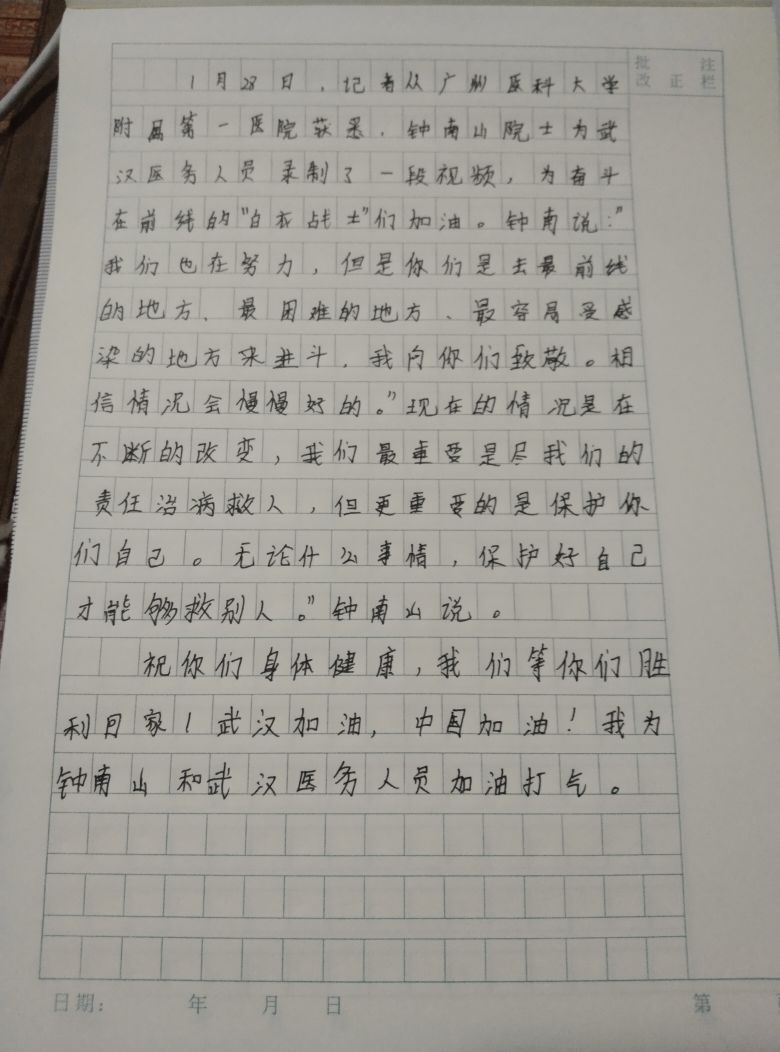 批注
改正栏
1月28日，记者从广州医科大学
附属第一医院获悉，钟南山院士为武
汉医务人员录制了一段视频，为奋斗
在前线的"白衣战士"们加油。钟南说："
我们也在努力，但是你们是去最前线
的地方、最困难的地方、最容易受感
染的地方来进斗，我向你们致敬。相
信情况会慢慢好的。"现在的情况是在
不断的改变，我们最重要是尽我们的
责任治病救人，但更重要的是保护你
们自己。无论什么事情，保护好自己
才能够救别人。"钟南山说。
祝你们身体健康，我们等你们胜
利回家！武汉加油，中国加油！我为
钟南山和武汉医务人员加油打气。
日期： 年 月 日 第